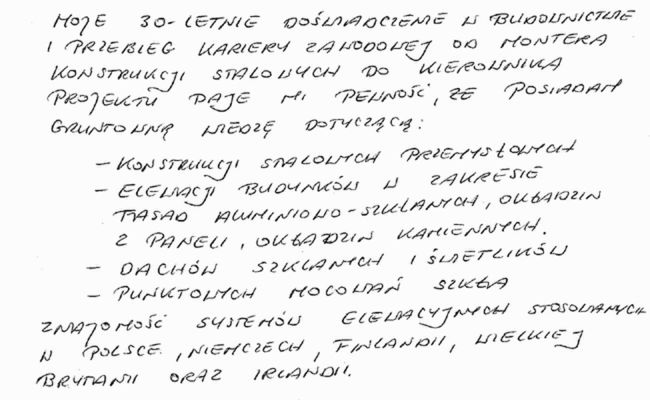 MOJE 30-LETNIE DOŚWIADCZENIE W BUDOWNICTWIE
I PRZEBIEG KARIERY ZAWODOWEJ OD MONTERA
KONSTRUKCJI STALOWYCH DO KIEROWNIKA
PROJEKTU DAJE MI PEWNOŚĆ, ŻE POSIADAM
GRUNTOWNĄ WIEDZĘ DOTYCZĄCĄ:
- KONSTRUKCJI STALOWYCH PRZEMYSŁOWYCH
- ELEWACJI BUDYNKÓW W ZAKRESIE
FASAD ALUMINIOWO-SZKLANYCH, OKŁADZIN
Z PANELI, OKŁADZIN KAMIENNYCH.
- DACHÓW SZKLANYCH I ŚWIETLIKÓW
- PUNKTOWYCH MOCOWAŃ SZKŁA
ZNAJOMOŚĆ SYSTEMÓW ELEWACYJNYCH STOSOWANYCH
W POLSCE, NIEMCZECH, FINLANDII, WIELKIEJ
BRYTANII ORAZ IRLANDII.